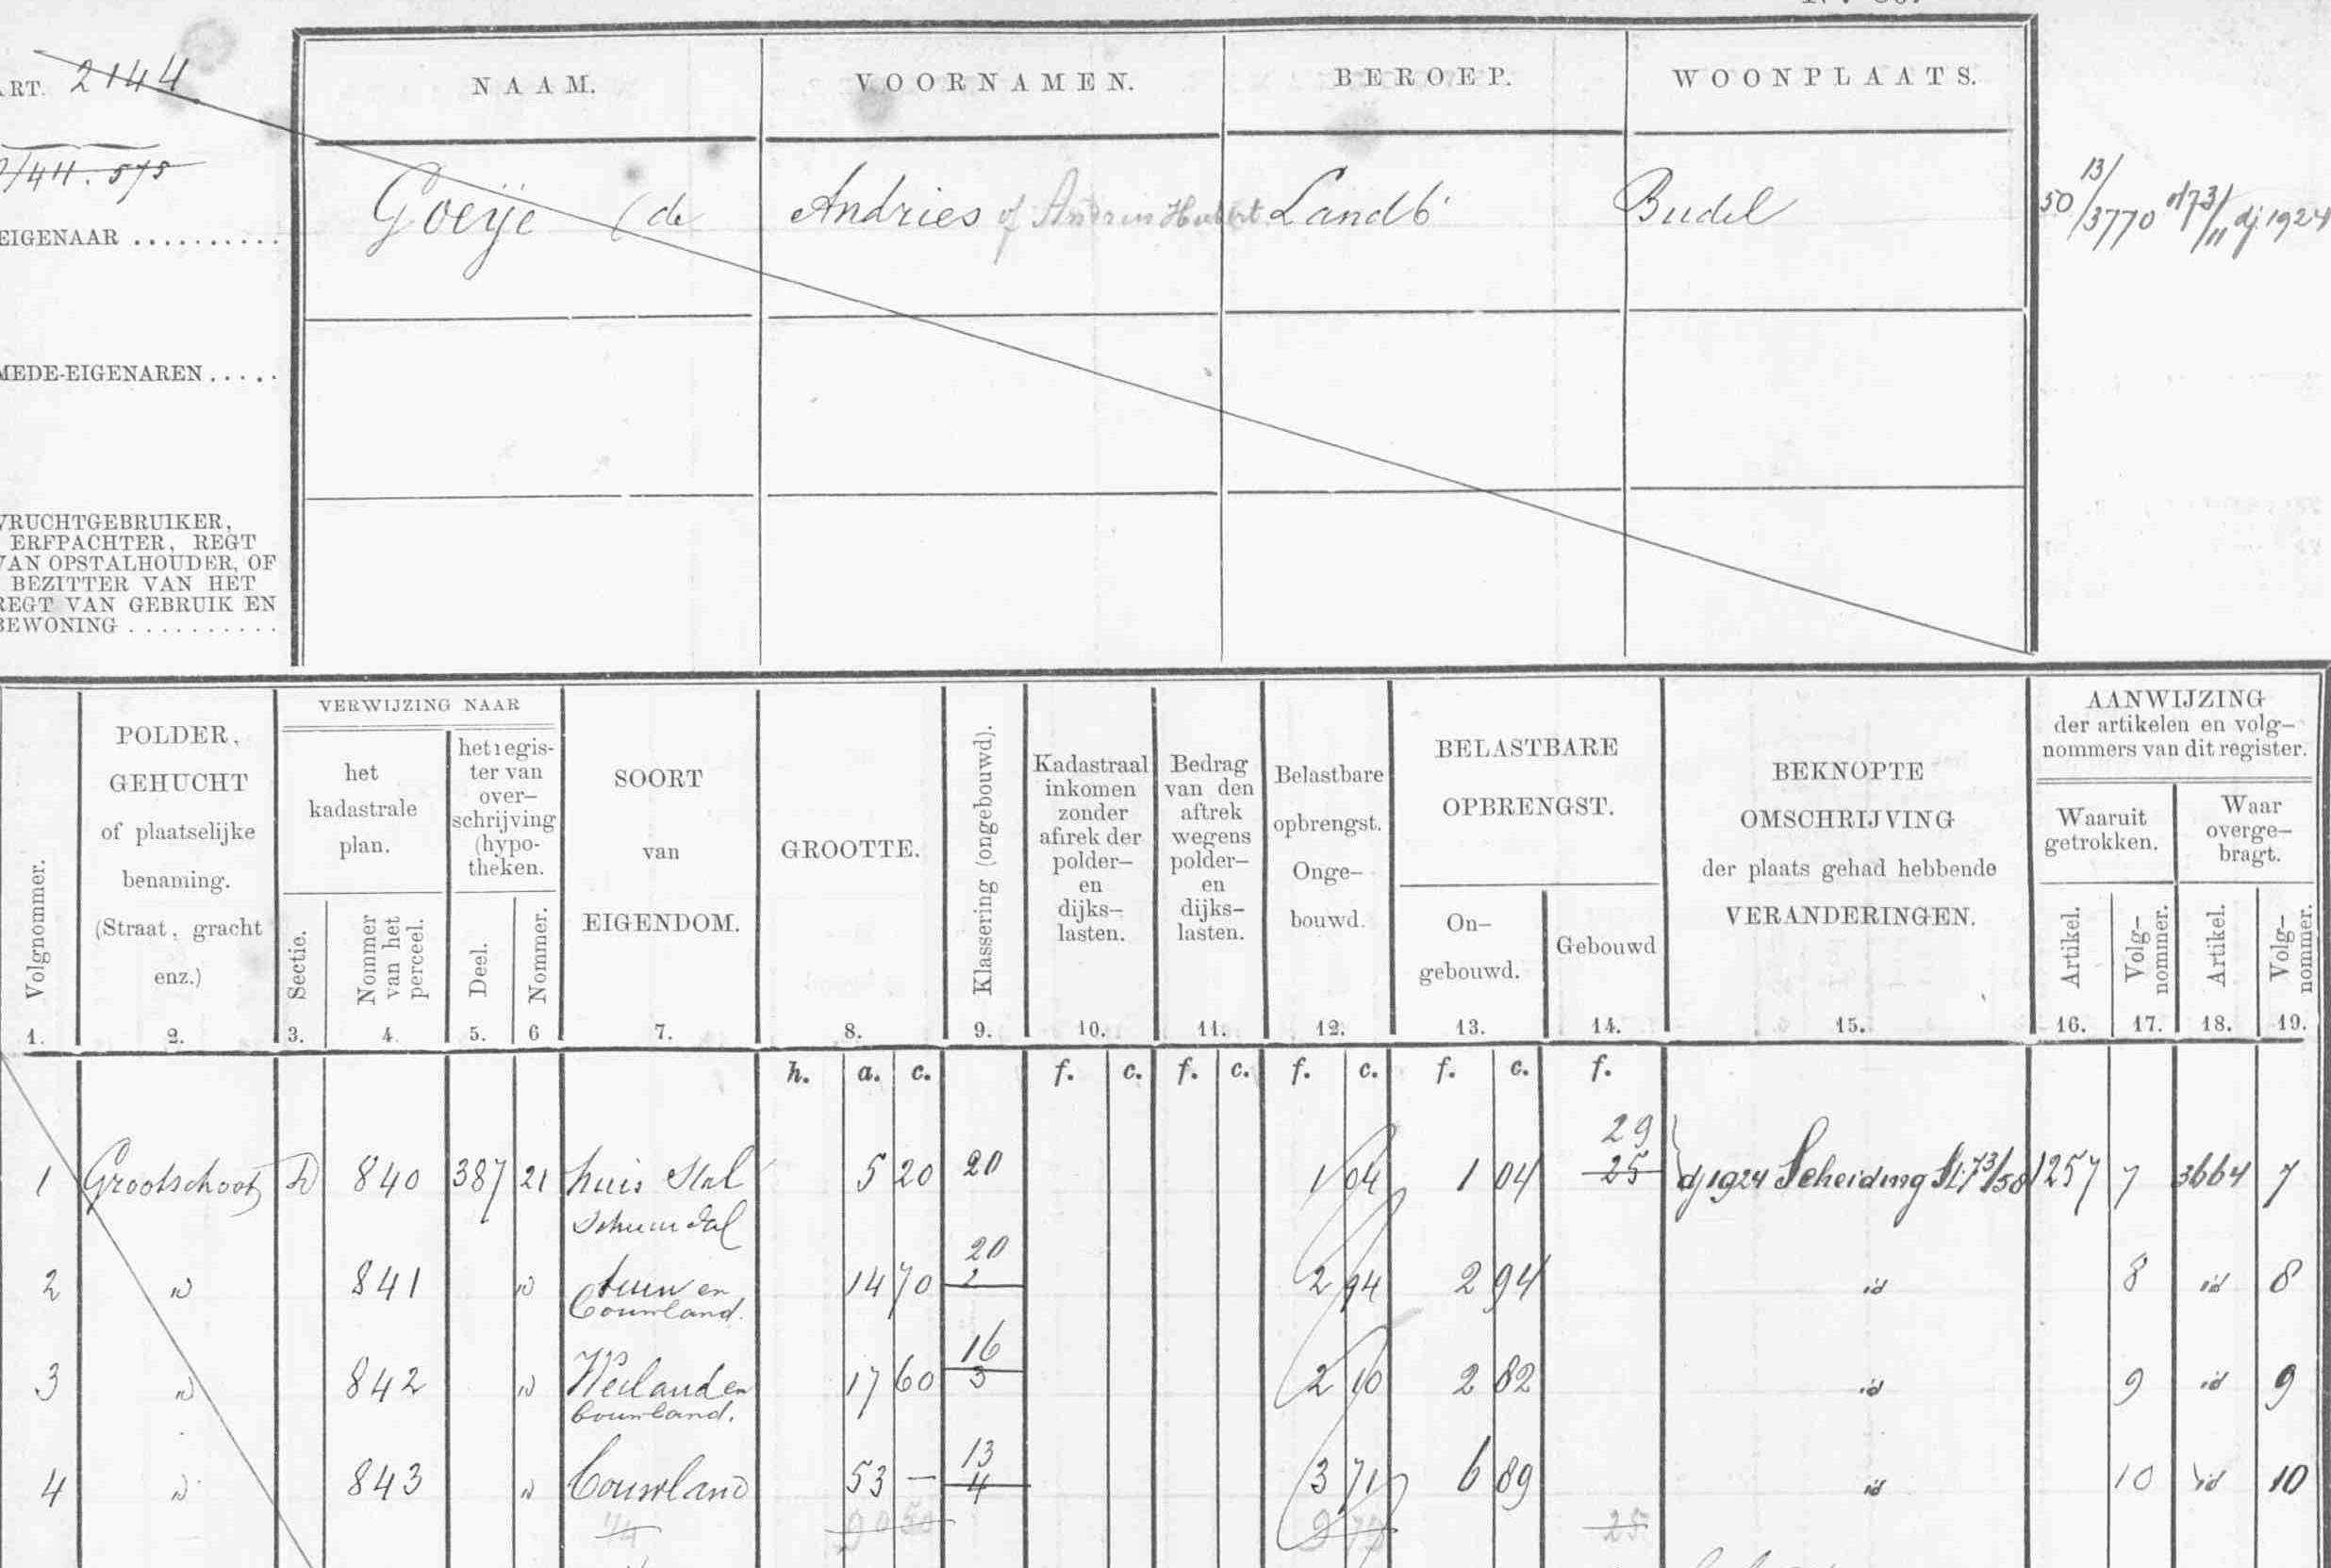 ART. 2144
NAAM. VOORNAMEN. BEROEP. WOONPLAATS.
EIGENAAR .......... Goeije (de Andries of Andries Hubert Landb. Budel
13/
50/3770 73/11 dj 1924
MEDE-EIGENAREN .....
VRUCHTGEBRUIKER,
ERFPACHTER, REGT
VAN OPSTALHOUDER, OF
BEZITTER VAN HET
REGT VAN GEBRUIK EN
BEWONING ..........
Volgnommer.
1.
POLDER,
GEHUCHT
of plaatselijke
benaming.
(Straat, gracht
enz.)
2.
VERWIJZING NAAR
het
kadastrale
plan.
Sectie.
3.
Nommer
van het
perceel.
4.
het regis-
ter van
over-
schrijving
(hypo-
theken.
Deel.
5.
Nommer.
6
SOORT
van
EIGENDOM.
7.
GROOTTE.
8.
Klassering (ongebouwd).
9.
Kadastraal
inkomen
zonder
afirek der
polder-
en
dijks-
lasten.
10.
Bedrag
van den
aftrek
wegens
polder-
en
dijks-
lasten.
11.
Belastbare
opbrengst.
Onge-
bouwd.
12.
BELASTBARE
OPBRENGST.
On-
gebouwd.
13.
Gebouwd
14.
BEKNOPTE
OMSCHRIJVING
der plaats gehad hebbende
VERANDERINGEN.
15.
AANWIJZING
der artikelen en volg-
nommers van dit register.
Waaruit
getrokken.
Artikel.
16.
Volg-
nommer.
17.
Waar
overge-
bragt.
Artikel.
18.
Volg-
nommer.
19.
h. a. c. f. c. f. c. f. c. f. c. f.
29
1 Grootschoot D 840 387 21 huis Stal 5 20 20 1 04 1 04 25 dj 1924 Scheiding St. 73/50 1257 7 3664 7
Schuur
20
2 " 841 " tuin en 14 70 2 2 94 2 94 id 8 id 8
bouwland.
16
3 " 842 " Weiland en 17 60 3 2 10 2 82 id 9 id 9
bouwland.
13
4 " 843 " bouwland 53 — 4 3 71 6 89 id 10 id 10
74 90 50 9 79 25